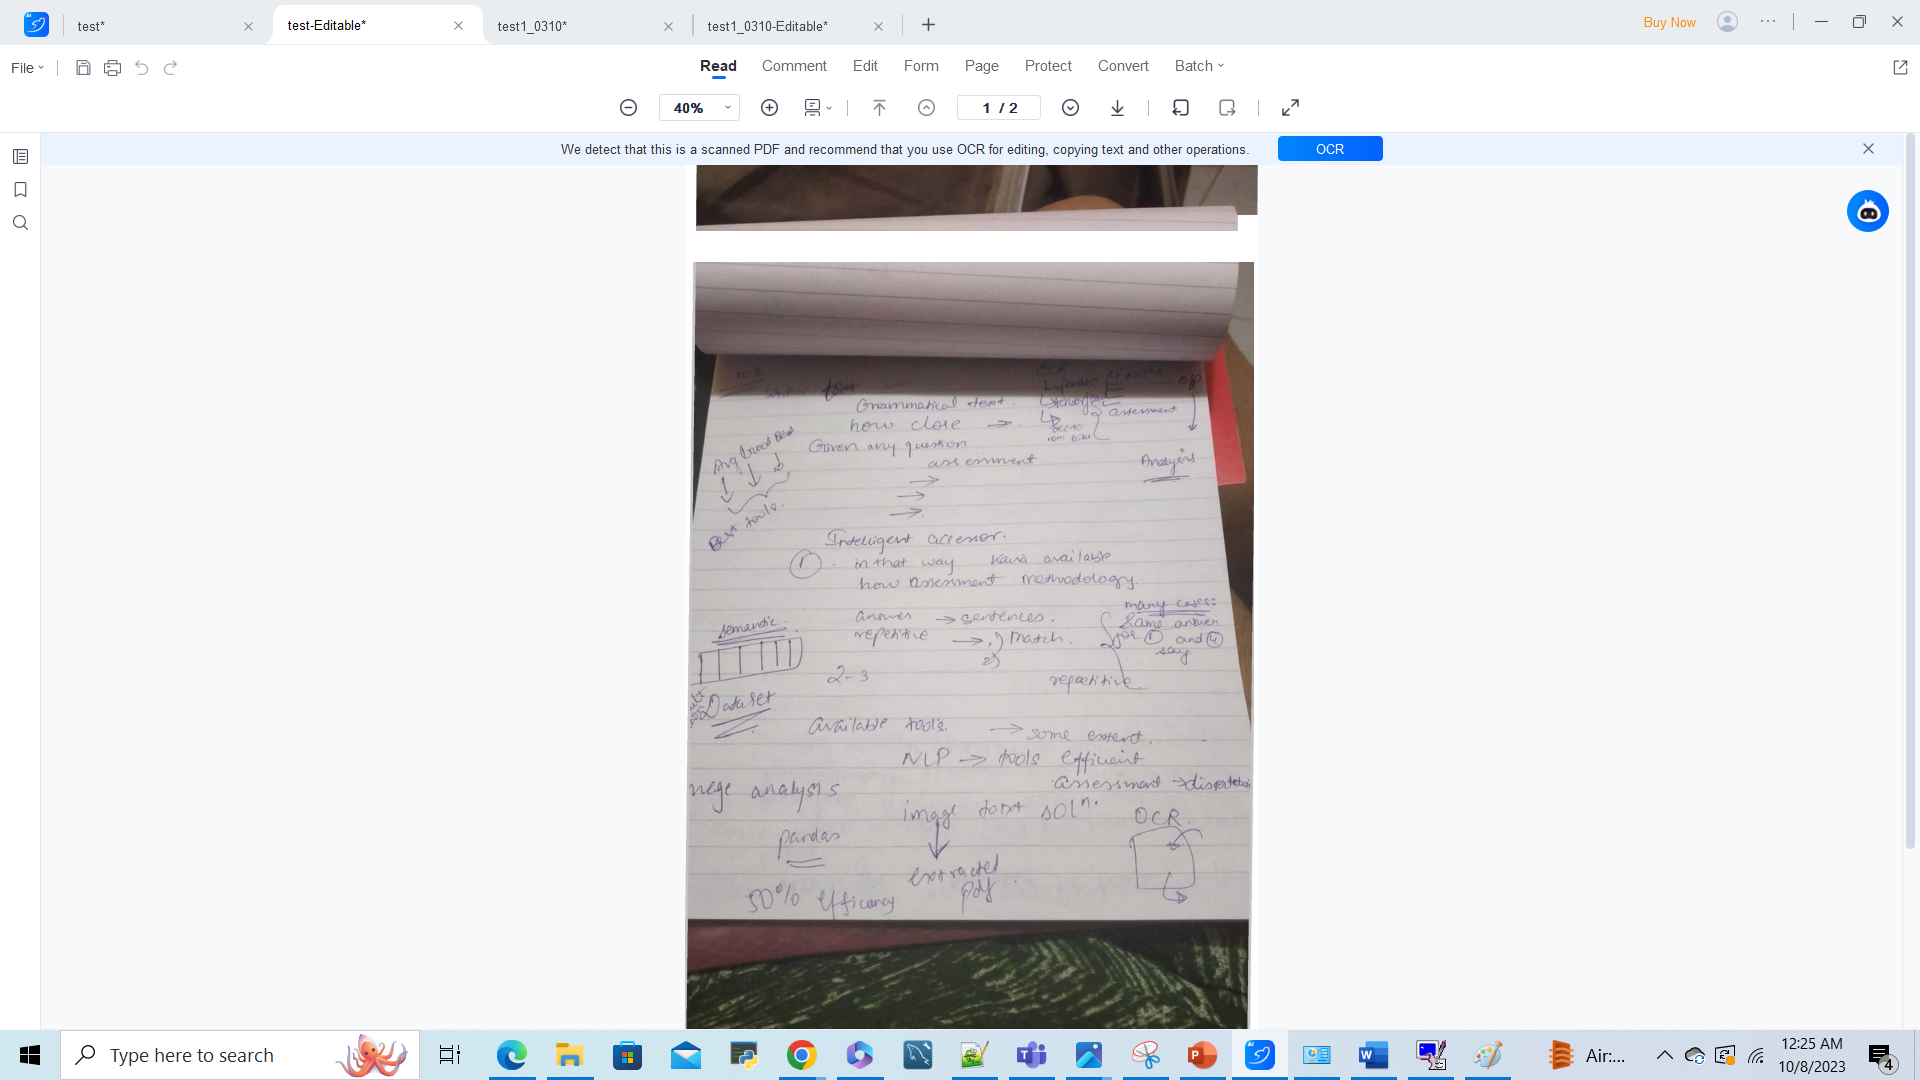 test*
test-Editable*
test1_0310*
test1_0310-Editable*
Buy Now
File
Read
Comment
Edit
Form
Page
Protect
Convert
Batch
40%
1 / 2
We detect that this is a scanned PDF and recommend that you use OCR for editing, copying text and other operations.
OCR
OCR
4 tools
O/P
Grammatical text.
assessment
how close →
Given any question
assessment
Analysis
Avg Good Best
Best tools.
→
→
→
Intelligent accessor.
1. in that way Kava available
how assessment methodology.
many cases:
answer → sentences.
Same answer
semantic.
repetitive → 1) Match.
for 1 and 4
2)
say
2-3
repetitive
Dataset
available tools. → some extent.
NLP → tools efficient
nege analysis
assessment →
image text solⁿ.
OCR.
pandas
extracted
pdf
50% efficiency
Type here to search
Air:...
12:25 AM
10/8/2023
4